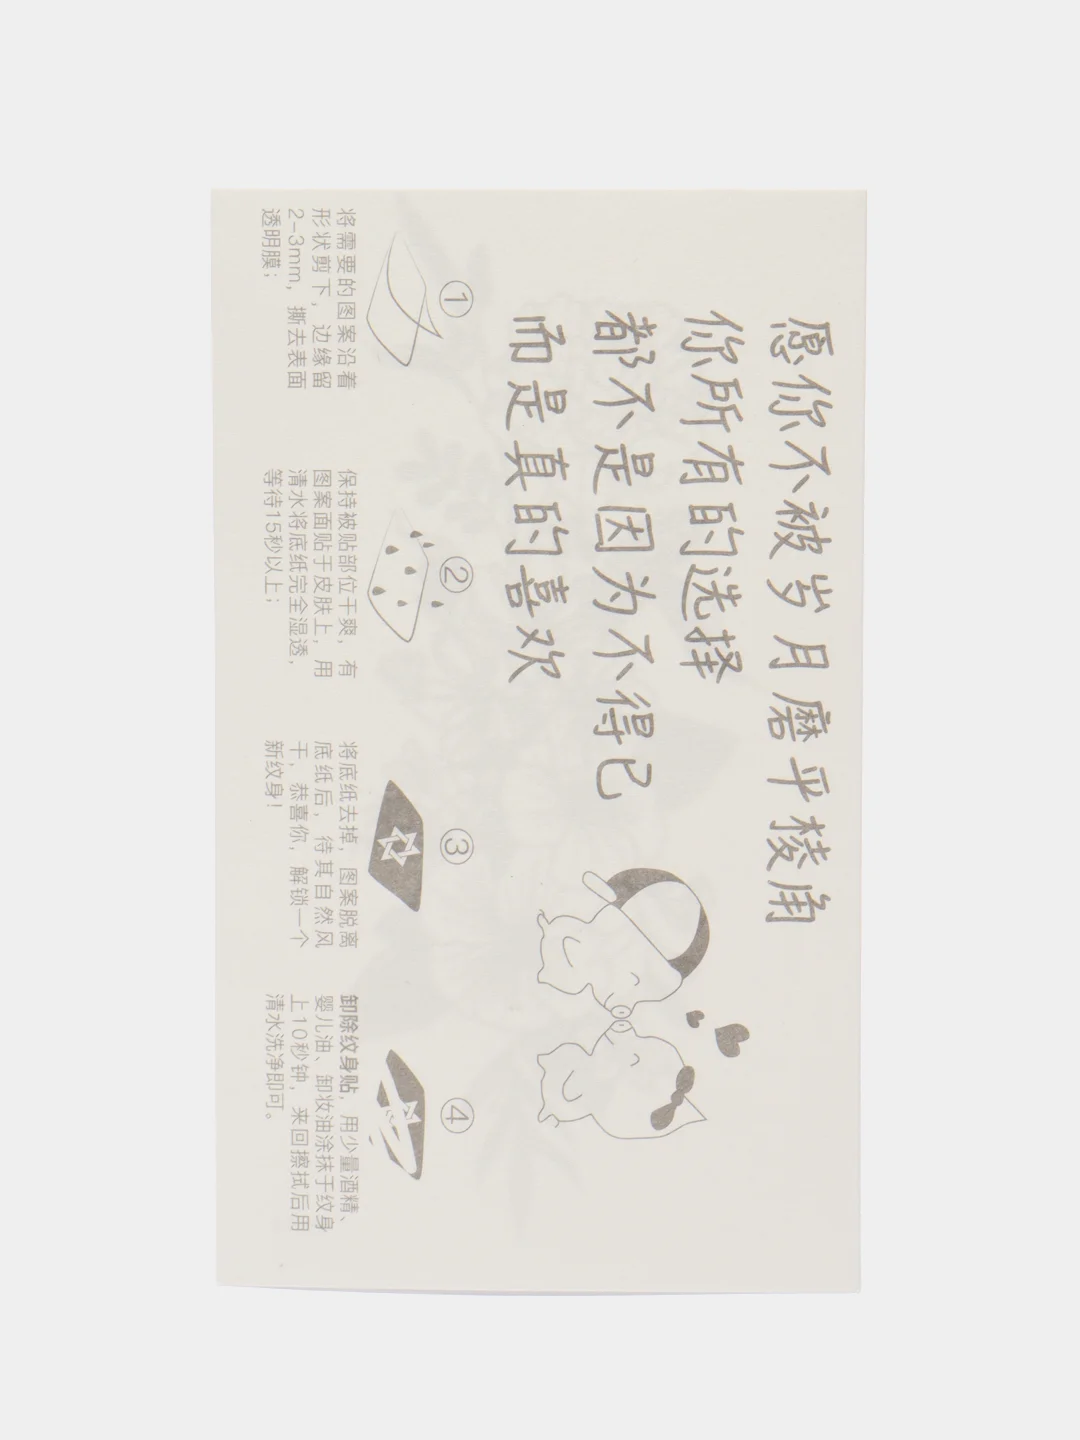 愿你不被岁月磨平棱角
你所有的选择
都不是因为不得已
而是真的喜欢
①
将需要的图案沿着
形状剪下，边缘留
2-3mm，撕去表面
透明膜；
②
保持被贴部位干爽，有
图案面贴于皮肤上，用
清水将底纸完全湿透，
等待15秒以上；
③
将底纸去掉，图案脱离
底纸后，待其自然风
干，恭喜你，解锁一个
新纹身！
④
卸除纹身贴，用少量酒精、
婴儿油、卸妆油涂抹于纹身
上10秒钟，来回擦拭后用
清水洗净即可。